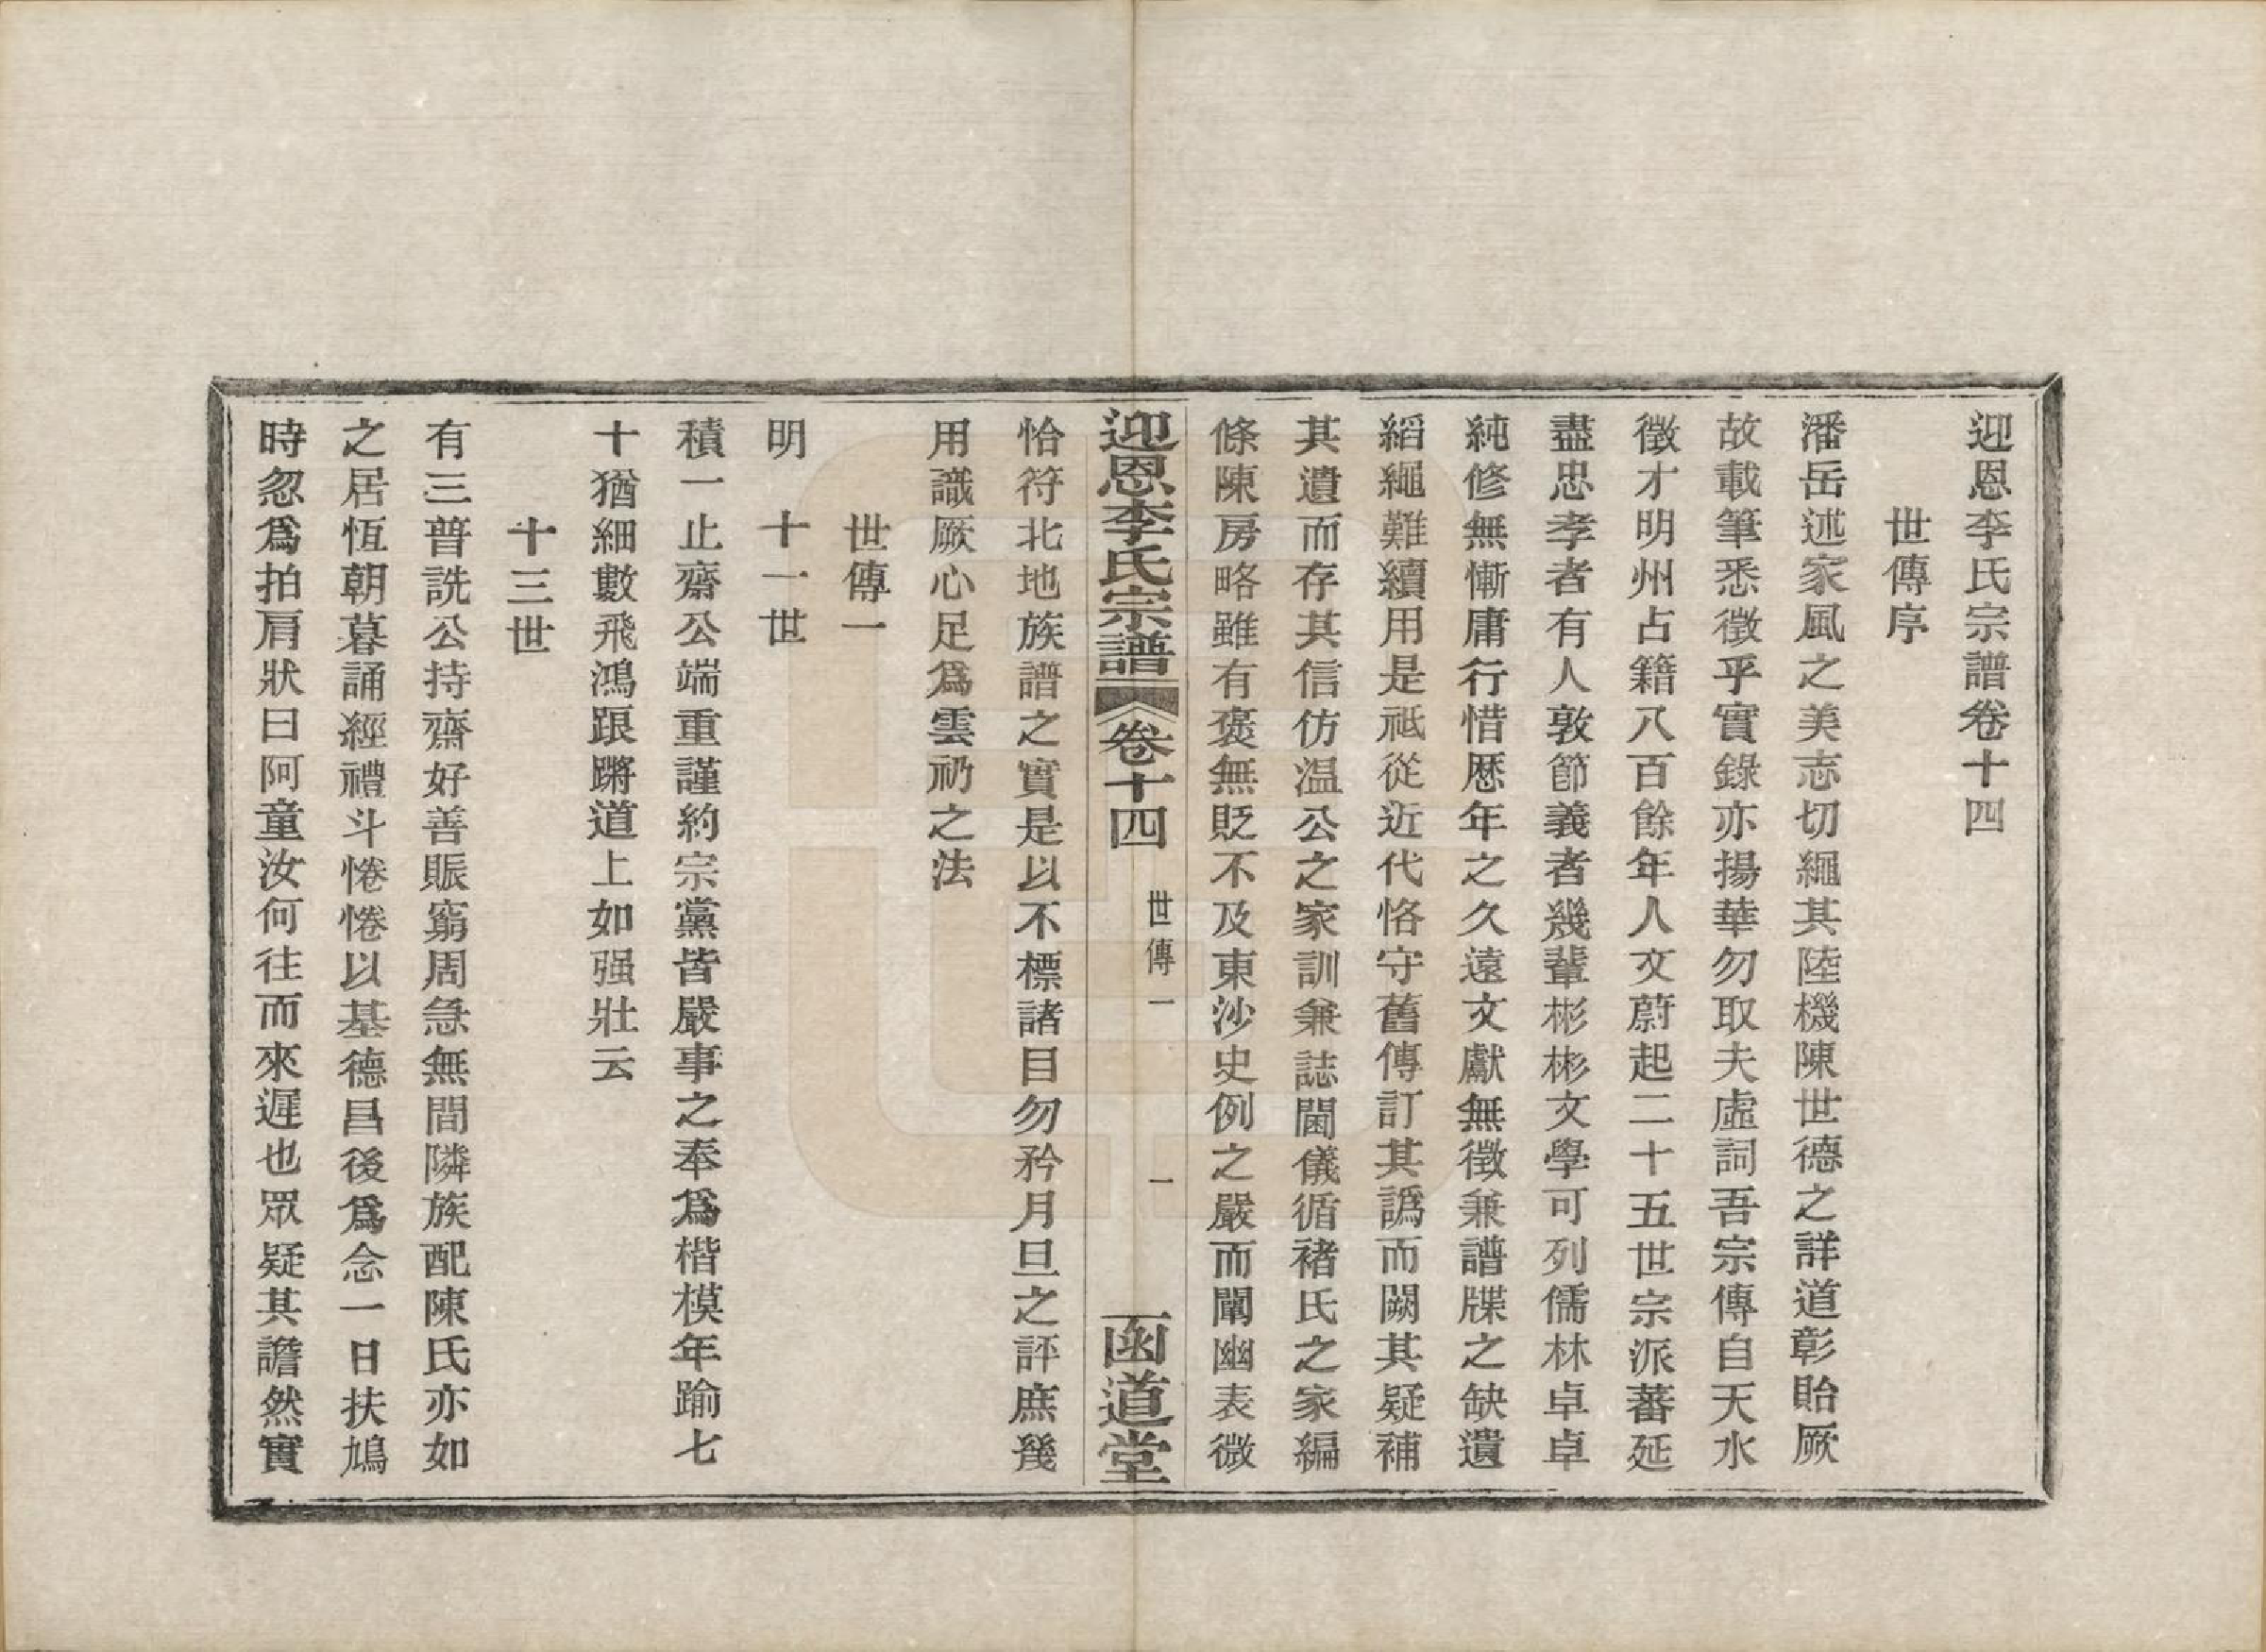 迎恩李氏宗譜卷十四
世傳序
潘岳述家風之美志切繩其陸機陳世德之詳道彰貽厥
故載筆悉徵乎實錄亦揚華勿取夫虛詞吾宗傳自天水
徵才明州占籍八百餘年人文蔚起二十五世宗派蕃延
盡忠孝者有人敦節義者幾輩彬彬文學可列儒林卓卓
純修無慚庸行惜歷年之久遠文獻無徵兼譜牒之缺遺
縚繩難續用是祗從近代恪守舊傳訂其譌而闕其疑補
其遺而存其信仿温公之家訓兼誌閫儀循褚氏之家編
條陳房略雖有褒無貶不及東沙史例之嚴而闡幽表微
迎恩李氏宗譜
卷十四
世傳一
一
函道堂
恰符北地族譜之實是以不標諸目勿矜月旦之評庶幾
用識厥心足爲雲礽之法
世傳一
明 十一世
積一止齋公端重謹約宗黨皆嚴事之奉爲楷模年踰七
十猶細數飛鴻跟蹡道上如强壯云
十三世
有三普詵公持齋好善賑窮周急無間隣族配陳氏亦如
之居恆朝暮誦經禮斗惓惓以基德昌後爲念一日扶鳩
時忽爲拍肩狀曰阿童汝何往而來遲也眾疑其譫然實